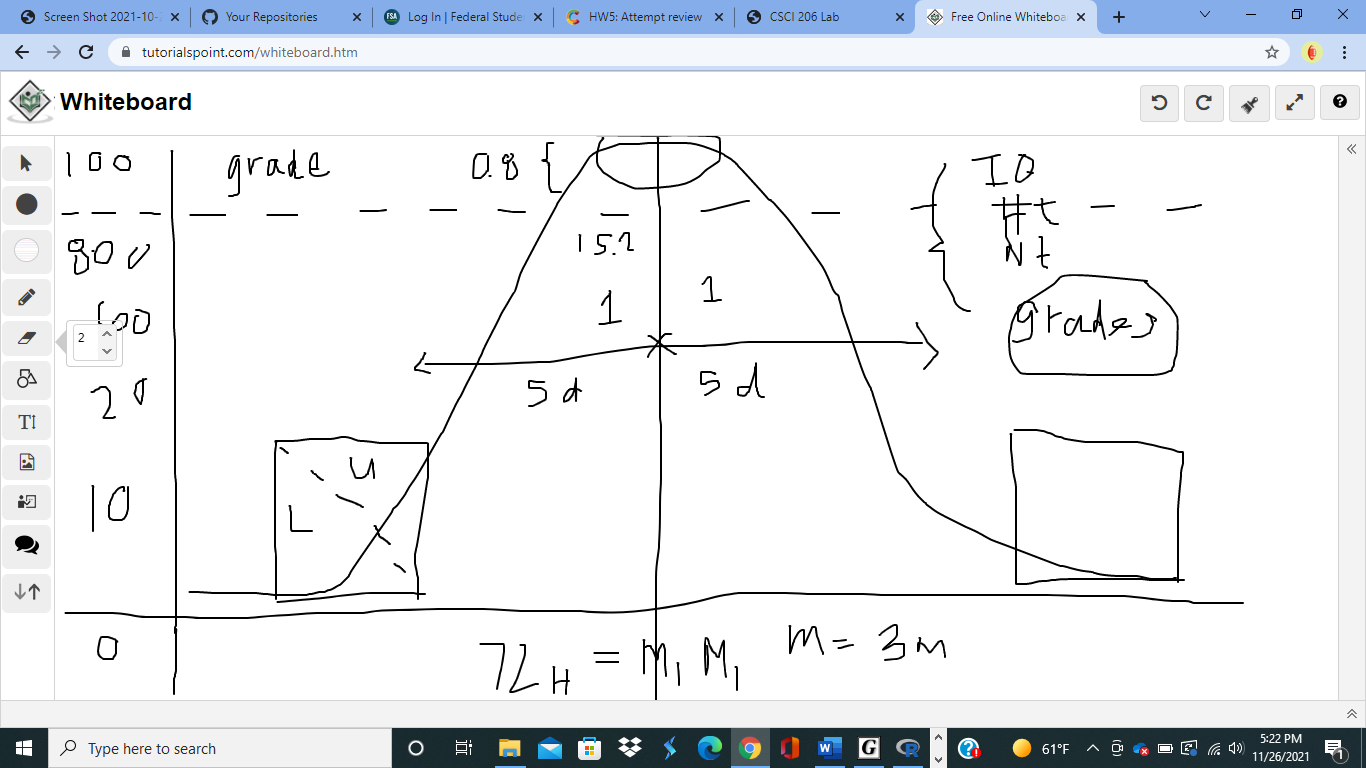 Screen Shot 2021-10-
Your Repositories
Log In | Federal Stude
HW5: Attempt review
CSCI 206 Lab
Free Online Whiteboa
tutorialspoint.com/whiteboard.htm
Whiteboard
100
grade
0.8
IQ
Ht
15.2
Nt
1
1
grades
2
5 d
5 d
U
L
10
0
72H = M1 M1
M = 3m
Type here to search
61°F
5:22 PM
11/26/2021